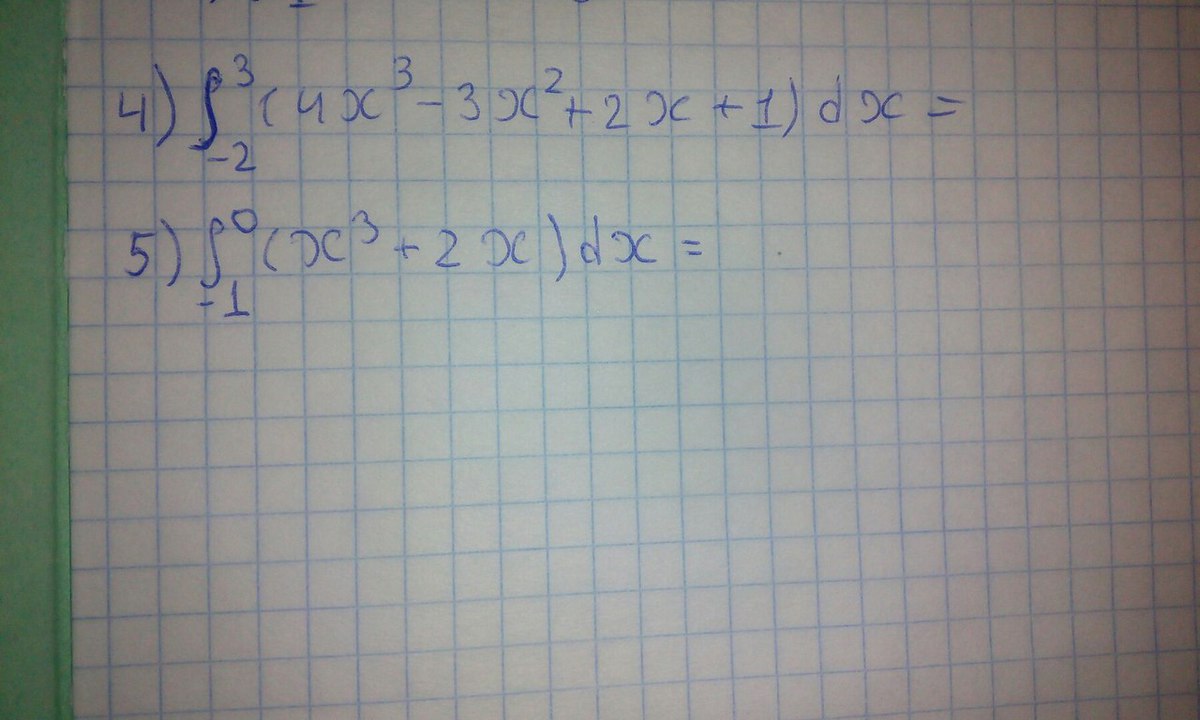 4) ∫₋₂³ (4x³ - 3x² + 2x + 1) dx =
5) ∫₋₁⁰ (x³ + 2x) dx =